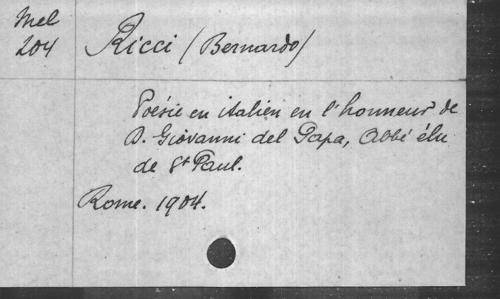 Mel
204
Ricci (Bernardo)
Poésie en italien en l'honneur de
D. Giovanni del Papa, Abbé élu
de St Paul.
Rome. 1904.